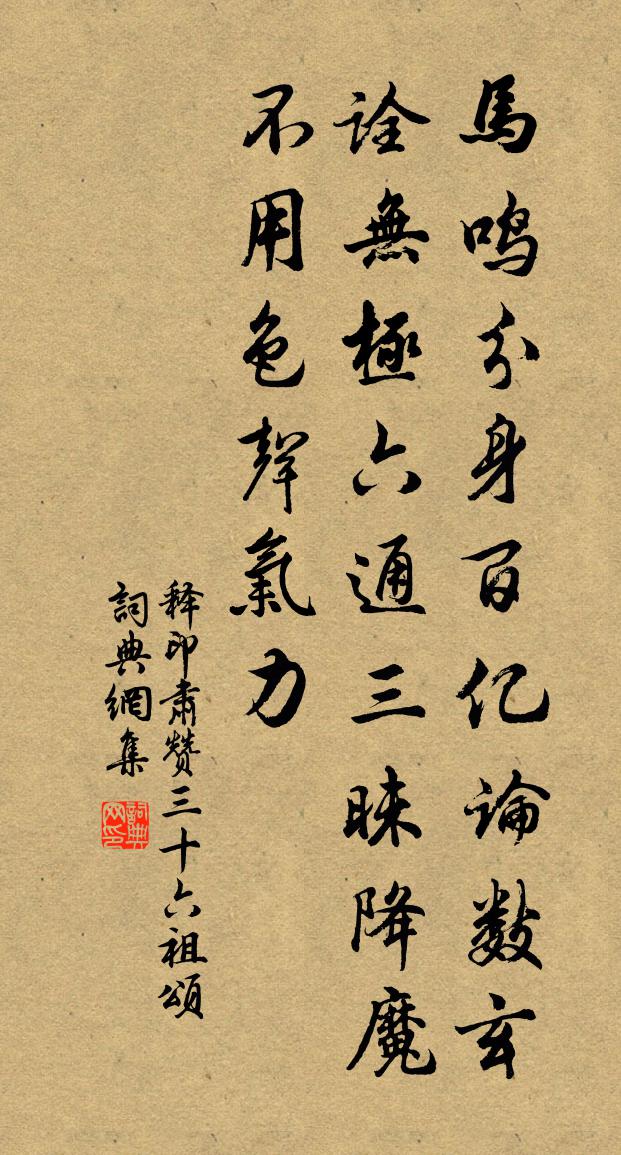 馬鳴分身百亿論數玄
詮無極六通三昧降魔
不用色聲氣力
释印肃赞三十六祖頌
詞典網集
詞典网印